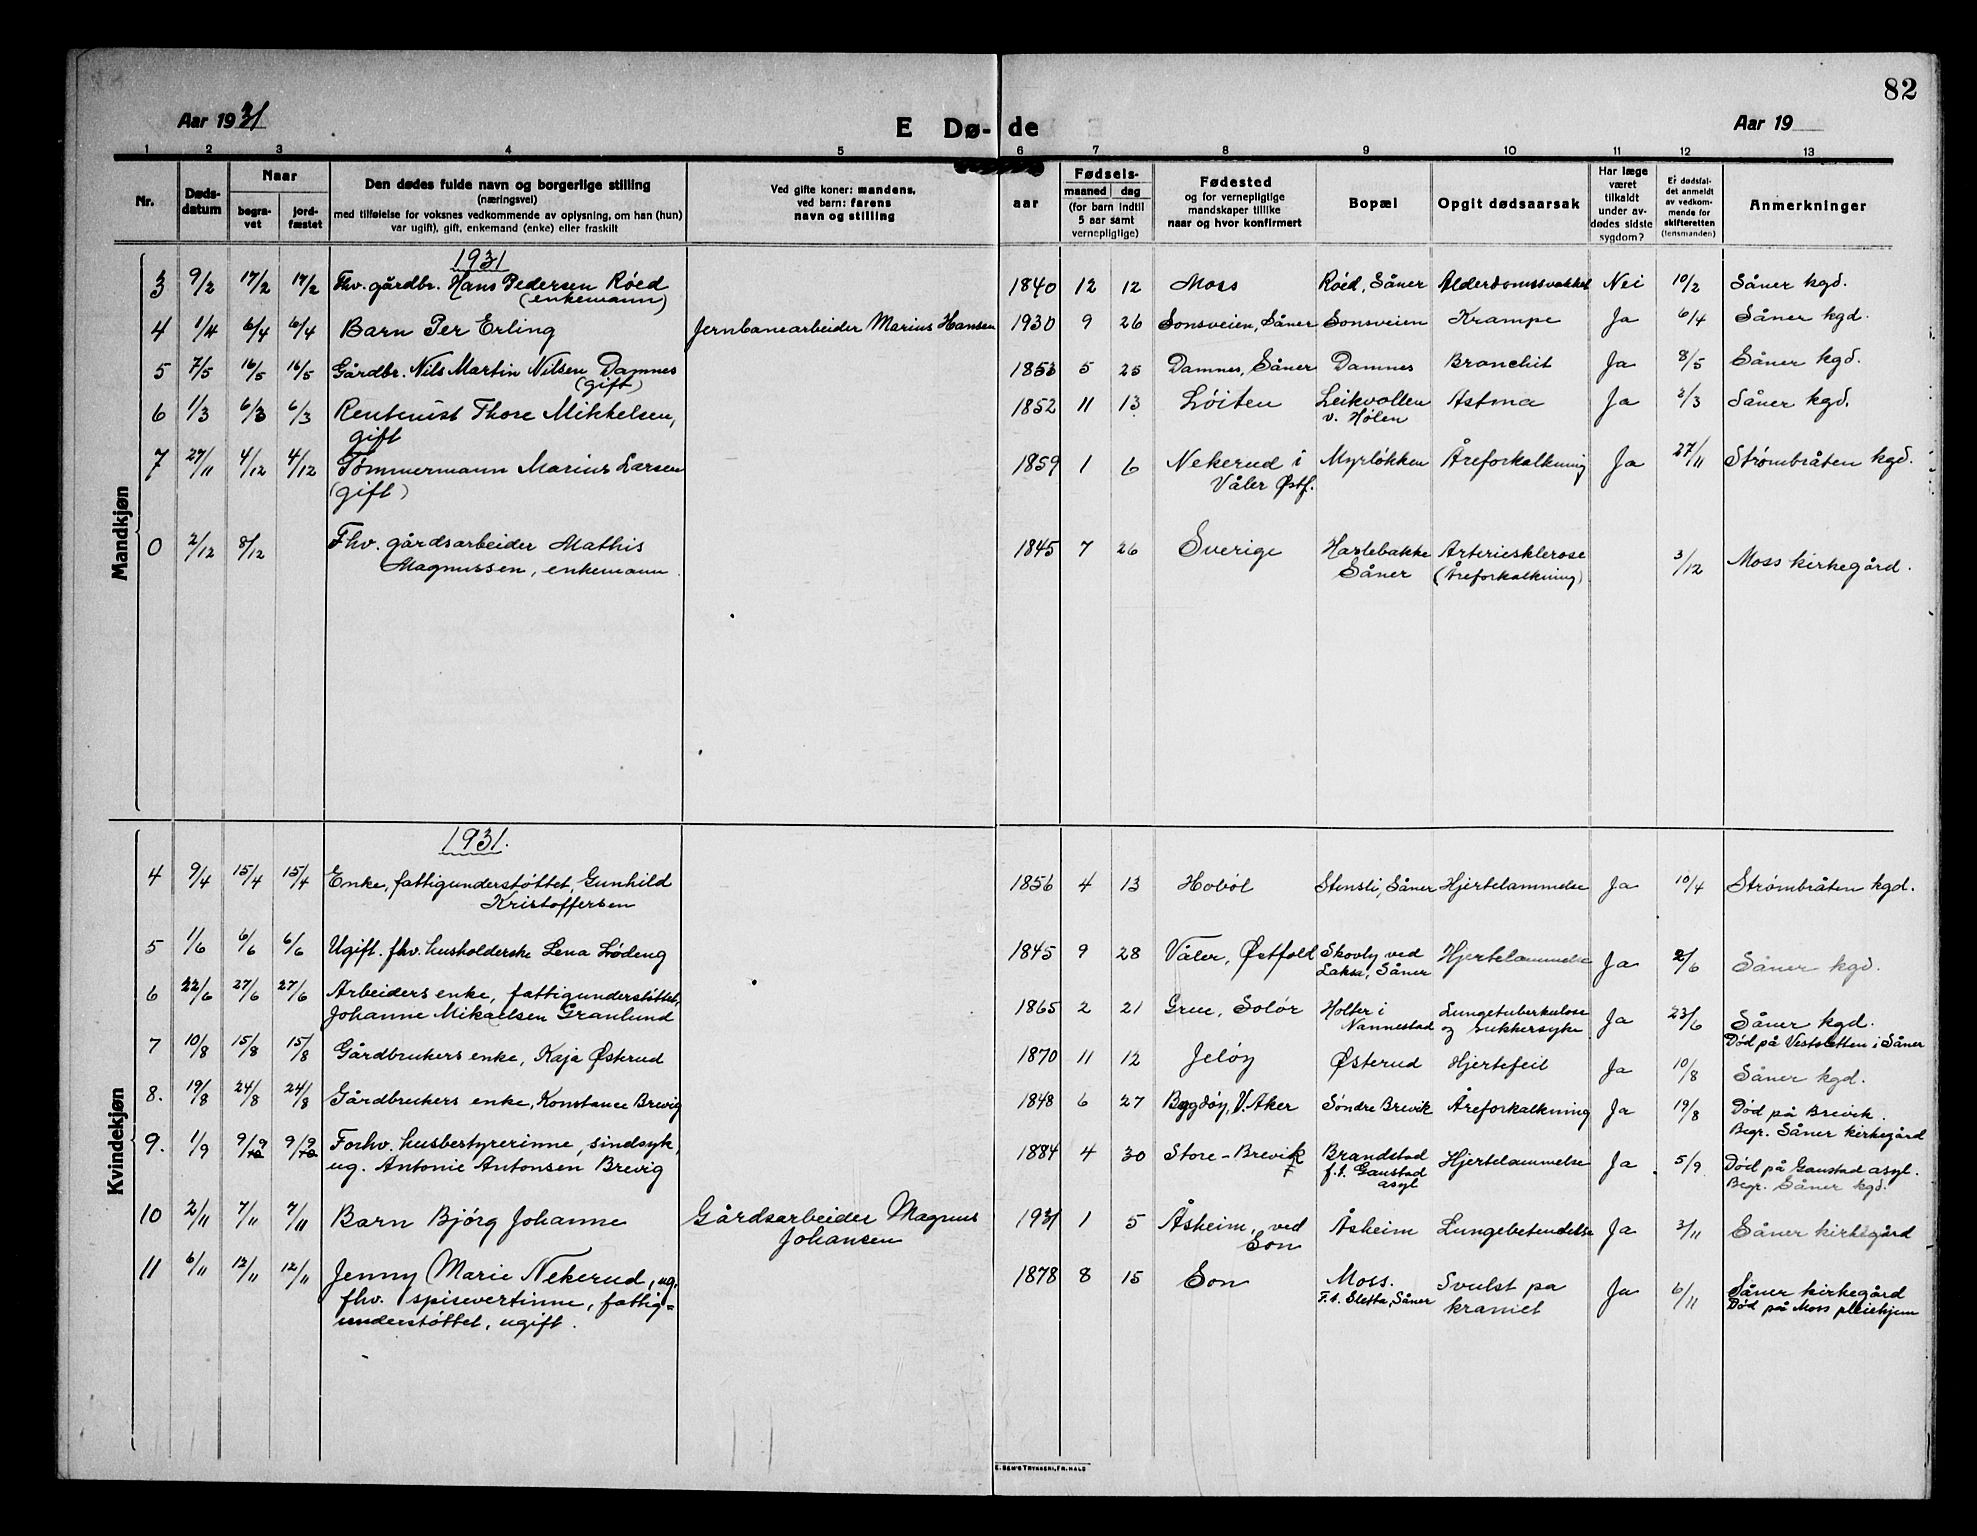 82
Aar 1931
E Dø- de
Aar 19
1 2 3 4 5 6 7 8 9 10 11 12 13
Nr.
Døds-
datum
Naar
begra-
vet
jord-
fæstet
Den dødes fulde navn og borgerlige stilling
(næringsvei)
med tilføielse for voksnes vedkommende av oplysning, om han (hun)
var ugift), gift, enkemand (enke) eller fraskilt
Ved gifte koner: mandens,
ved barn: farens
navn og stilling
Fødsels-
aar
maaned dag
(for barn indtil
5 aar samt
vernepligtige)
Fødested
og for vernepligtige
mandskaper tillike
naar og hvor konfirmert
Bopæl
Opgit dødsaarsak
Har læge
været
tilkaldt
under av-
dødes sidste
sygdom?
Er dødsfal-
det anmeldt
av vedkom-
mende for
skifteretten
(lensmanden)
Anmerkninger
Mandkjøn
1931
3 9/2 17/2 17/2 Fhv. gårdbr. Hans Pedersen Røed 1840 12 12 Moss Røed, Såner Alderdomssvakhet Nei 10/2 Såner kgd.
(enkemann)
4 1/4 6/4 6/4 Barn Per Erling Jernbanearbeider Marius Hansen 1930 9 26 Sonsveien, Såner Sonsveien Krampe Ja 6/4 Såner kgd.
5 7/5 16/5 16/5 Gårdbr. Nils Martin Nilsen Damnes 1853 5 25 Damnes, Såner Damnes Bronchit Ja 8/5 Såner kgd.
(gift)
6 1/3 6/3 6/3 Rentenist Thore Mikkelsen, 1852 11 13 Løiten Leikvollen Astma Ja 2/3 Såner kgd.
gift v. Hølen
7 27/11 4/12 4/12 Tømmermann Marius Larsen 1859 1 6 Nekerud i Myrløkken Åreforkalkning Ja 27/11 Strømbråten kgd.
(gift) Våler Østf.
0 2/12 8/12 Fhv. gårdsarbeider Mathis 1845 7 26 Sverige Haslebakke Arteriesklerose 3/12 Moss kirkegård.
Magnussen, enkemann Såner (Åreforkalkning)
Kvindekjøn
1931.
4 9/4 15/4 15/4 Enke, fattigunderstøttet, Gunhild 1856 4 13 Hobøl Stensli, Såner Hjertelammelse Ja 10/4 Strømbråten kgd.
Kristoffersen
5 1/6 6/6 6/6 Ugift. fhv. husholderske Lena Lødeng 1845 9 28 Våler, Østfold Skovly ved Hjertelammelse Ja 2/6 Såner kgd.
Laksa, Såner
6 22/6 27/6 27/6 Arbeiders enke, fattigunderstøttet, 1865 2 21 Grue, Solør Holter i Lungetuberkulose Ja 23/6 Såner kgd.
Johanne Mikaelsen Granlund Nannestad og sukkersyke Død på Vestsletten i Såner
7 10/8 15/8 15/8 Gårdbrukers enke, Kaja Østerud 1870 11 12 Jeløy Østerud Hjertefeil Ja 10/8 Såner kgd.
8. 19/8 24/8 24/8 Gårdbrukers enke, Konstance Brevig 1848 6 27 Bygdøy, V. Aker Søndre Brevik Åreforkalkning Ja 19/8 Død på Brevik.
Begr. Såner kirkegård
9. 1/9 9/9 9/9 Forhv. husbestyrerinne, sindsyk, 1884 4 30 Store-Brevik Brandstad Hjertelammelse Ja 5/9 Død på Gaustad asyl.
ug. Antonie Antonsen Brevig f.t. Gaustad asyl Begr. Såner kgd.
10 2/11 7/11 7/11 Barn Bjørg Johanne Gårdsarbeider Magnus 1931 1 5 Åsheim, ved Åsheim Lungebetendelse Ja 3/11 Såner kirkegård
Johansen Son
11 6/11 12/11 12/11 Jenny Marie Nekerud, ug. 1878 8 15 Son Moss. Svulst pa Ja 6/11 Såner kirkegård
fhv. spisevertinne, fattig= F.t. Sletta, Såner kraniet Død på Moss pleiehjem
understøttet, ugift.
E. SEM'S TRYKKERI, FR.HALD